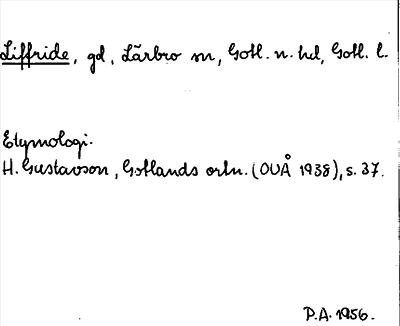 Liffride, gd, Lärbro sn, Gotl. n. hd, Gotl. l.
Etymologi.
H. Gustavson, Gotlands ortn. (OUÅ 1938), s. 37.
P.A. 1956.